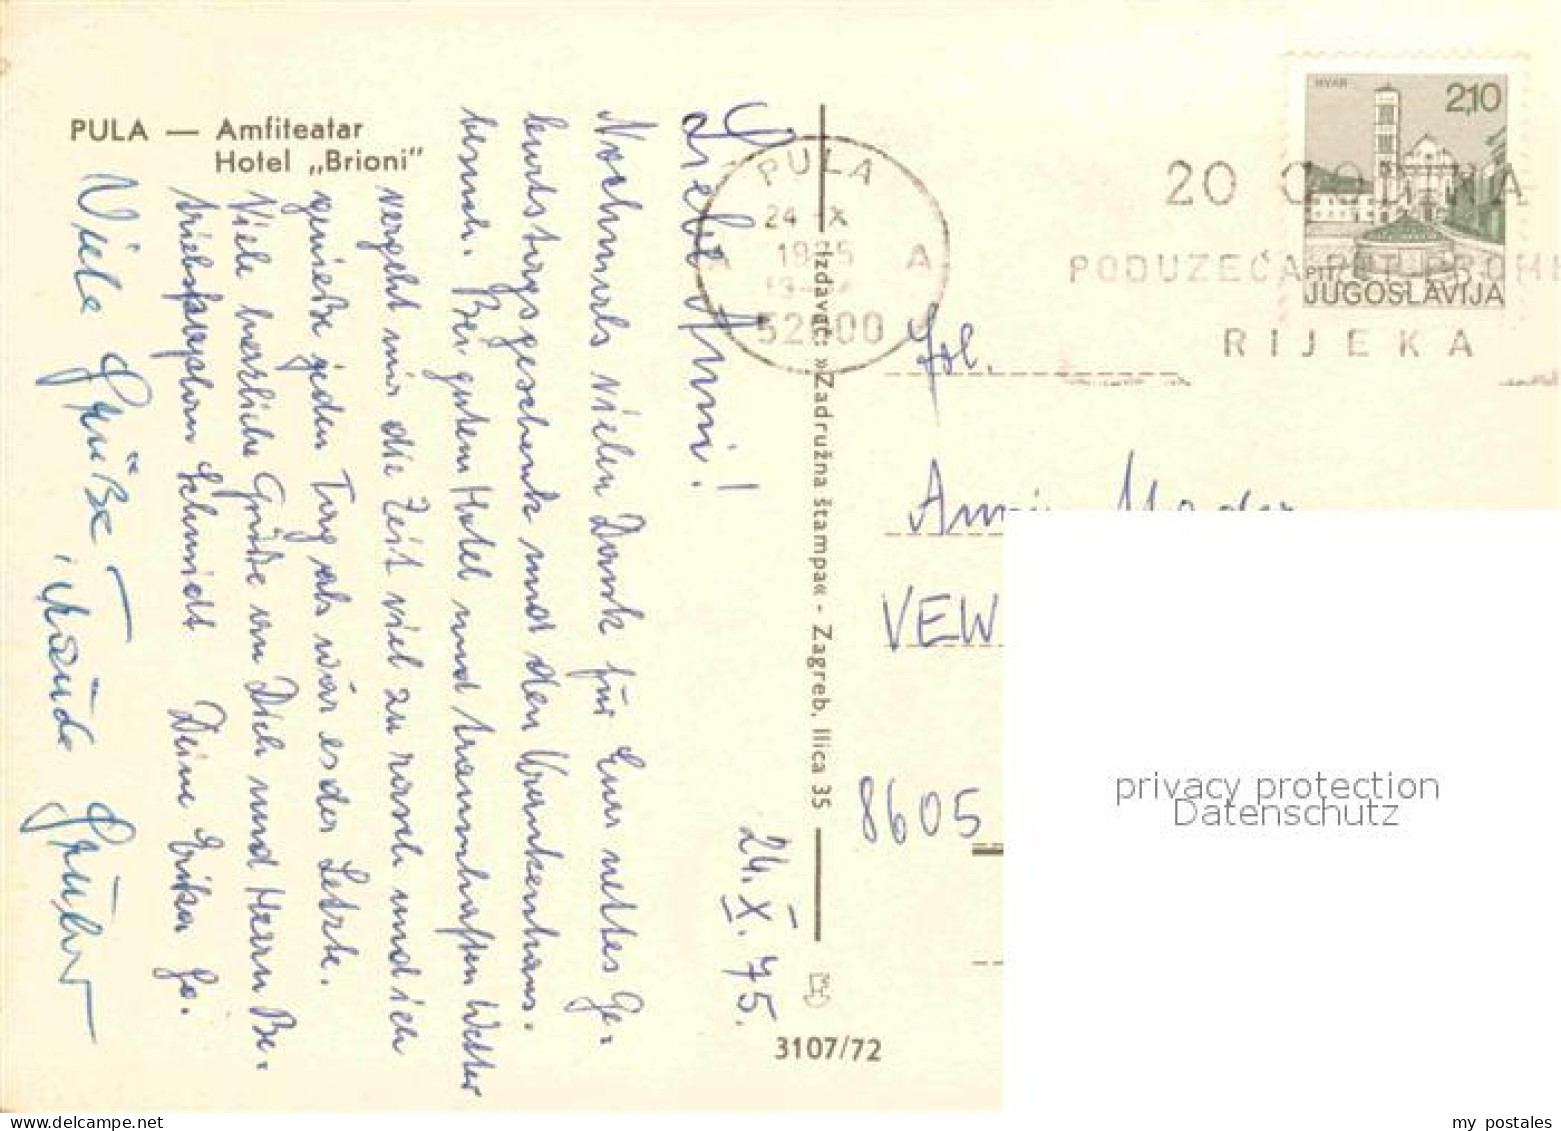 PULA — Amfiteatar
Hotel „Brioni"
24. X. 75.
Liebe Anni!
Nochmals vielen Dank für Euer nettes Ge-
burtstagsgeschenk und den Krankenhaus-
besuch. Bei gutem Hotel und traumhaften Wetter
vergeht mir die Zeit viel zu rasch und ich
genieße jeden Tag als wär es der Letzte.
Viele herzliche Grüße an Dich und Herrn Be-
triebskaplan Schmidt Deine Erika
Viele Grüße
Izdavač: »Zadružna štampa« - Zagreb, Ilica 35
3107/72
PULA
24 X
A
52000
20 GODINA
PODUZEĆA PTT PROM
RIJEKA
HVAR
2,10
JUGOSLAVIJA
Anni
VEW
8605
privacy protection
Datenschutz
my postales